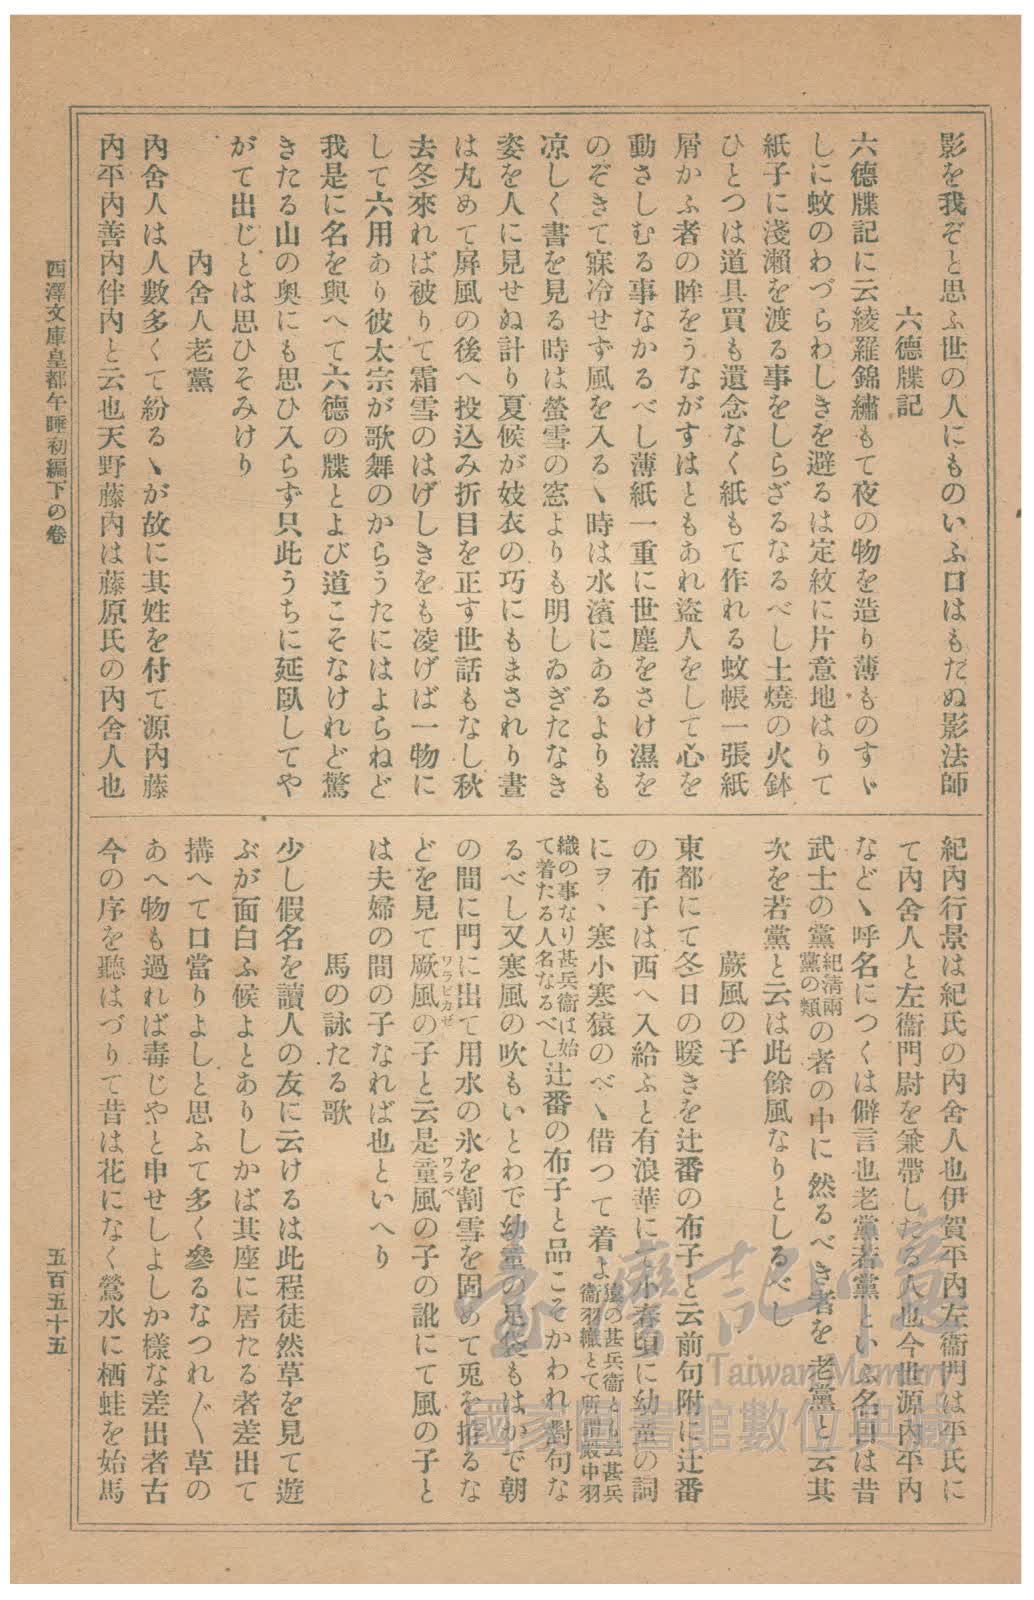 影を我ぞと思ふ世の人にものいふ口はもだぬ影法師
六德牒記
六德牒記に云綾羅錦繡もて夜の物を造り薄ものすゞ
しに蚊のわづらわしきを避るは定紋に片意地はりて
紙子に淺瀨を渡る事をしらざるなるべし土燒の火鉢
ひとつは道具買も遺念なく紙もて作れる蚊帳一張紙
屑かふ者の眸をうながすはともあれ盜人をして心を
動さしむる事なかるべし薄紙一重に世塵をさけ濕を
のぞきて寐冷せず風を入るゝ時は水濱にあるよりも
凉しく書を見る時は螢雪の窓よりも明しゐぎたなき
姿を人に見せぬ計り夏候が妓衣の巧にもまされり晝
は丸めて屛風の後へ投込み折目を正す世話もなし秋
去冬來れば被りて霜雪のはげしきをも凌げば一物に
して六用あり彼太宗が歌舞のからうたにはよらねど
我是に名を與へて六德の牒とよび道こそなけれど驚
きたる山の奥にも思ひ入らず只此うちに延臥してや
がて出じとは思ひそみけり
內舍人老黨
內舍人は人數多くて紛るゝが故に其姓を付て源內藤
內平內善內伴內と云也天野藤內は藤原氏の內舍人也
紀內行景は紀氏の內舍人也伊賀平內左衞門は平氏に
て內舍人と左衞門尉を兼帶したる人也今世源內平內
などゝ呼名につくは僻言也老黨若黨といふ名目は昔
武士の黨紀淸兩黨の類の者の中に然るべき者を老黨と云其
次を若黨と云は此餘風なりとしるべし
蕨風の子
東都にて冬日の暖きを辻番の布子と云前句附に辻番
の布子は西へ入給ふと有浪華にて小春頃に幼童の詞
にヲヽ寒小寒猿のべゝ借つて着よ猿の甚兵衞とも云甚兵衞羽織とて所謂嚴中羽
織の事なり甚兵衞は始て着たる人名なるべし辻番の布子と品こそかわれ對句な
るべし又寒風の吹もいとわで幼童の足袋もはかで朝
の間に門に出て用水の氷を割雪を固めて兎を拵るな
どを見て蕨風の子と云是童風の子の訛にて風の子と
は夫婦の間の子なれば也といへり
馬の詠たる歌
少し假名を讀人の友に云けるは此程徒然草を見て遊
ぶが面白ふ候よとありしかば其座に居たる者差出て
搆へて口當りよしと思ふて多く參るなつれ〴〵草の
あへ物も過れば毒じやと申せしよしか樣な差出者古
今の序を聽はづりて昔は花になく鶯水に栖蛙を始馬
西澤文庫皇都午睡初編下の卷
五百五十五
臺灣記憶
Taiwan Memory
國家圖書館數位典藏